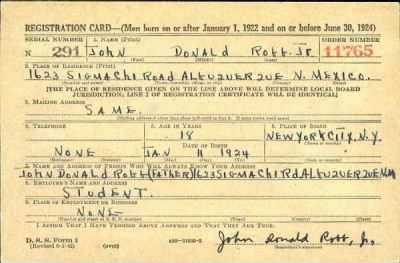 REGISTRATION CARD—(Men born on or after January 1, 1922 and on or before June 30, 1924)
SERIAL NUMBER 1. NAME (Print) ORDER NUMBER
N 291 JOHN DONALD ROTT. Jr. 11765
(First) (Middle) (Last)
2. PLACE OF RESIDENCE (Print)
1623 SIGMA CHI ROAD ALBUQUERQUE N. MEXICO.
[THE PLACE OF RESIDENCE GIVEN ON THE LINE ABOVE WILL DETERMINE LOCAL BOARD
JURISDICTION; LINE 2 OF REGISTRATION CERTIFICATE WILL BE IDENTICAL]
3. MAILING ADDRESS
SAME.
4. TELEPHONE 5. AGE IN YEARS 6. PLACE OF BIRTH
18 NEW YORK CITY, N.Y.
DATE OF BIRTH
NONE JAN 11 1924
7. NAME AND ADDRESS OF PERSON WHO WILL ALWAYS KNOW YOUR ADDRESS
JOHN DONALD ROTT (FATHER) 1623 SIGMA CHI Rd ALBUQUERQUE N.M
8. EMPLOYER'S NAME AND ADDRESS
STUDENT.
9. PLACE OF EMPLOYMENT OR BUSINESS
NONE
I AFFIRM THAT I HAVE VERIFIED ABOVE ANSWERS AND THAT THEY ARE TRUE.
D. S. S. Form 1
(over) John Donald Rott, Jr.
(Registrant's signature)